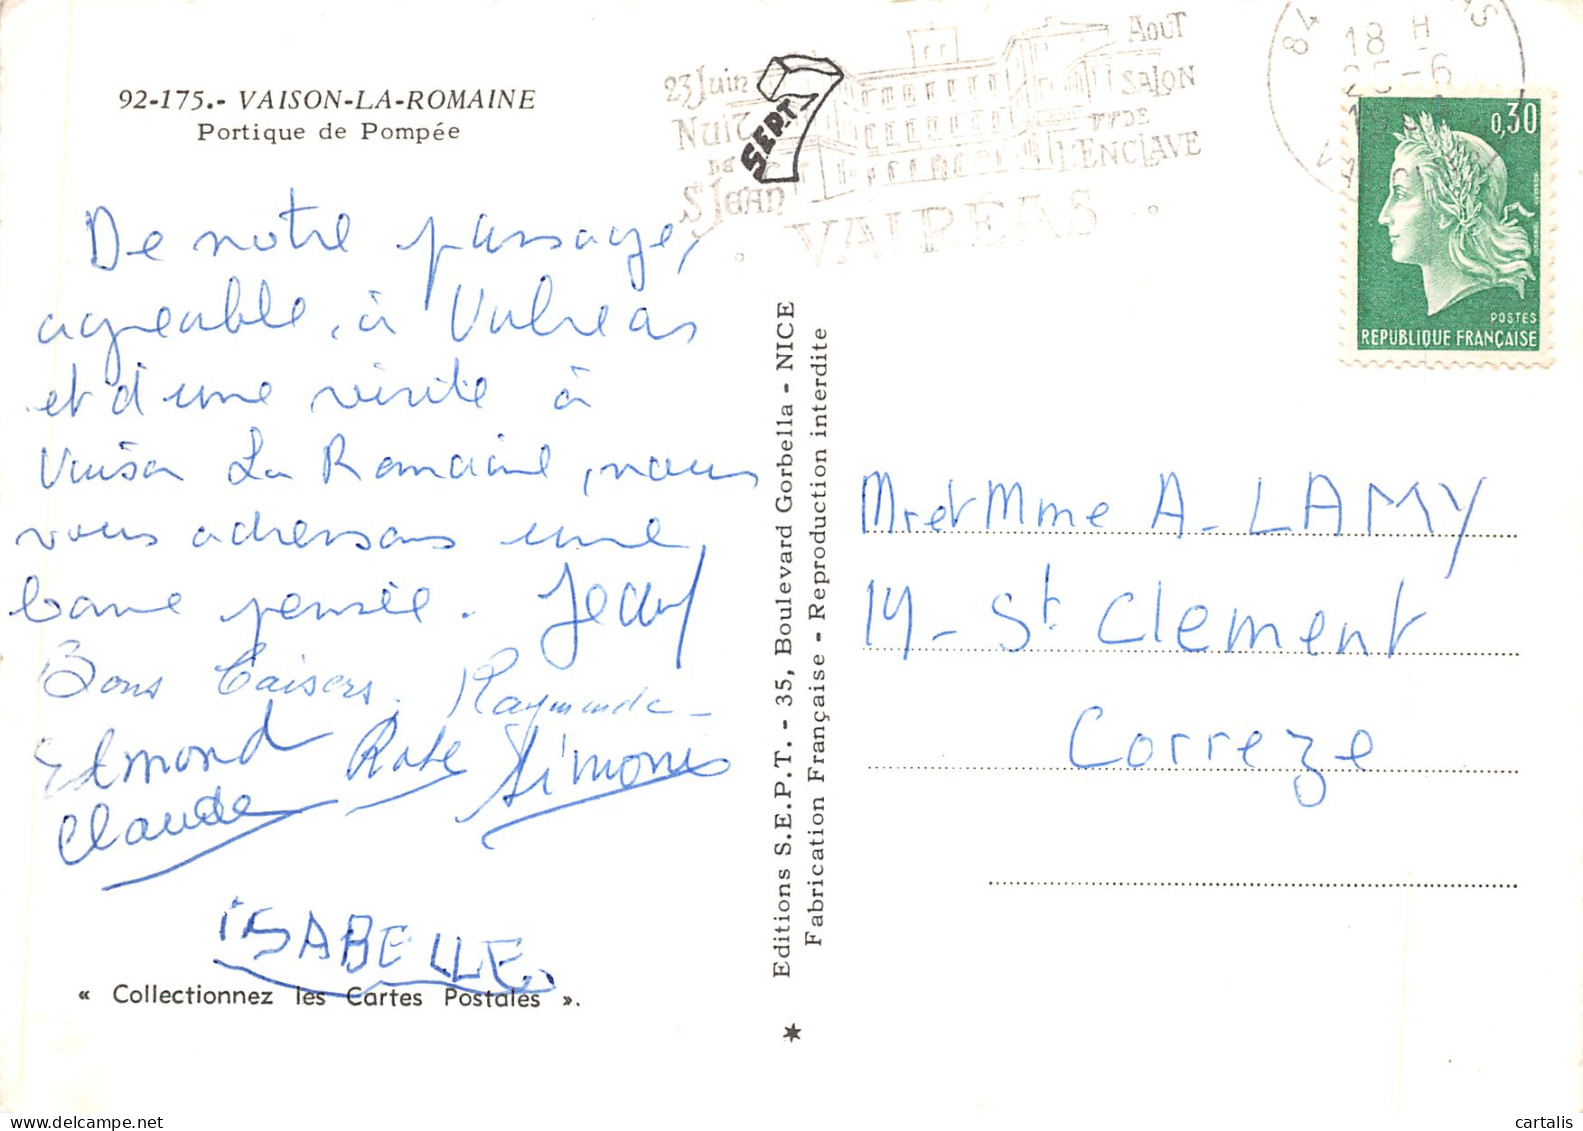 92-175.- VAISON-LA-ROMAINE
Portique de Pompée
De notre passage,
agréable, à Valréas
et d'une visite à
Vaison La Romaine, nous
vous adressons une
bonne pensée. Jean
Bons baisers. Raymonde
Edmond Simone
Claude
ISABELLE
« Collectionnez les Cartes Postales ».
Editions S.E.P.T. - 35, Boulevard Gorbella - NICE
Fabrication Française - Reproduction interdite
SEPT
23 Juin
NUIT
DE
St JEAN
AOUT
SALON
DE
L'ENCLAVE
VALREAS
84
18 H
25-6
0,30
POSTES
REPUBLIQUE FRANÇAISE
Mr et Mme A. LAMY
19 - St Clement
Correze
cartalis
www.delcampe.net